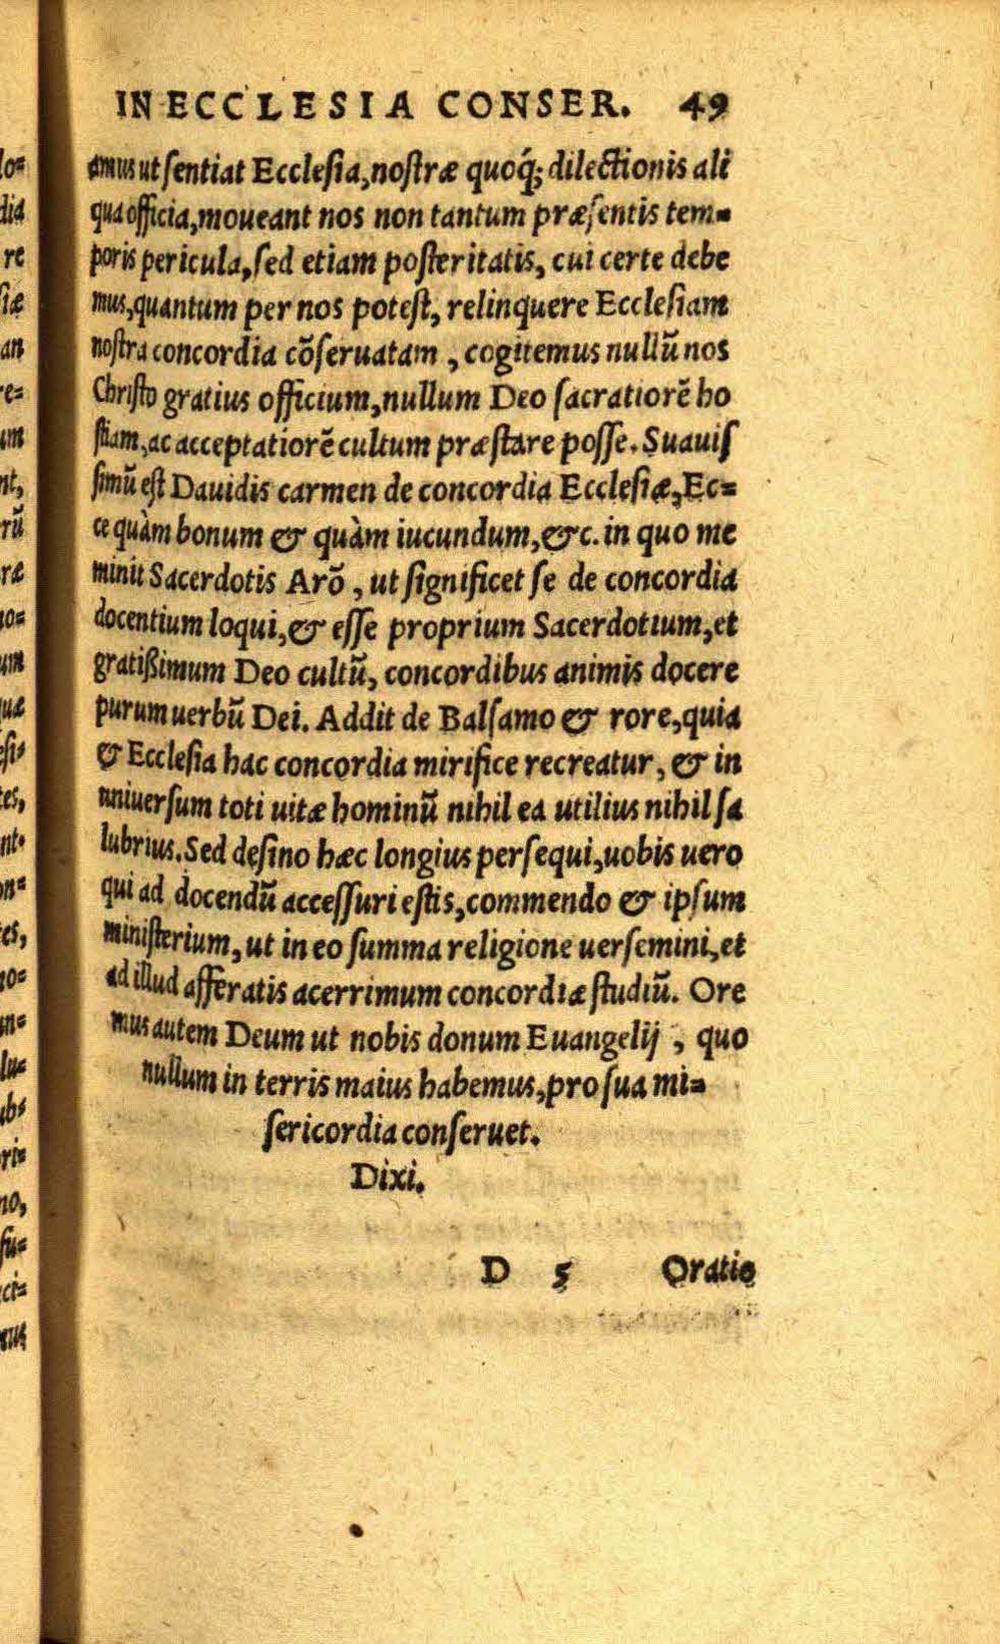 IN ECCLESIA CONSER. 49
amus ut ſentiat Eccleſia, noſtræ quoq́; dilectionis ali
qua officia, moueant nos non tantum præſentis tem=
poris pericula, ſed etiam poſteritatis, cui certe debe
mus, quantum per nos poteſt, relinquere Eccleſiam
noſtra concordia cõſeruatam, cogitemus nullũ nos
Chriſto gratius officium, nullum Deo ſacratiorẽ ho
ſtiam, ac acceptatiorẽ cultum præſtare poſſe. Suauiſ
ſimũ eſt Dauidis carmen de concordia Eccleſiæ, Ec=
ce quàm bonum & quàm iucundum, &c. in quo me
minit Sacerdotis Arõ, ut ſignificet ſe de concordia
docentium loqui, & eſſe proprium Sacerdotium, et
gratißimum Deo cultũ, concordibus animis docere
purum uerbũ Dei. Addit de Balſamo & rore, quia
& Eccleſia hac concordia mirifice recreatur, & in
uniuerſum toti uitæ hominũ nihil ea utilius nihil ſa
lubrius. Sed deſino hæc longius perſequi, uobis uero
qui ad docendũ acceſſuri eſtis, commendo & ipſum
miniſterium, ut in eo ſumma religione uerſemini, et
ad illud afferatis acerrimum concordiæ ſtudiũ. Ore
mus autem Deum ut nobis donum Euangelij, quo
nullum in terris maius habemus, pro ſua mi=
ſericordia conſeruet.
Dixi.
D 5 Oratio